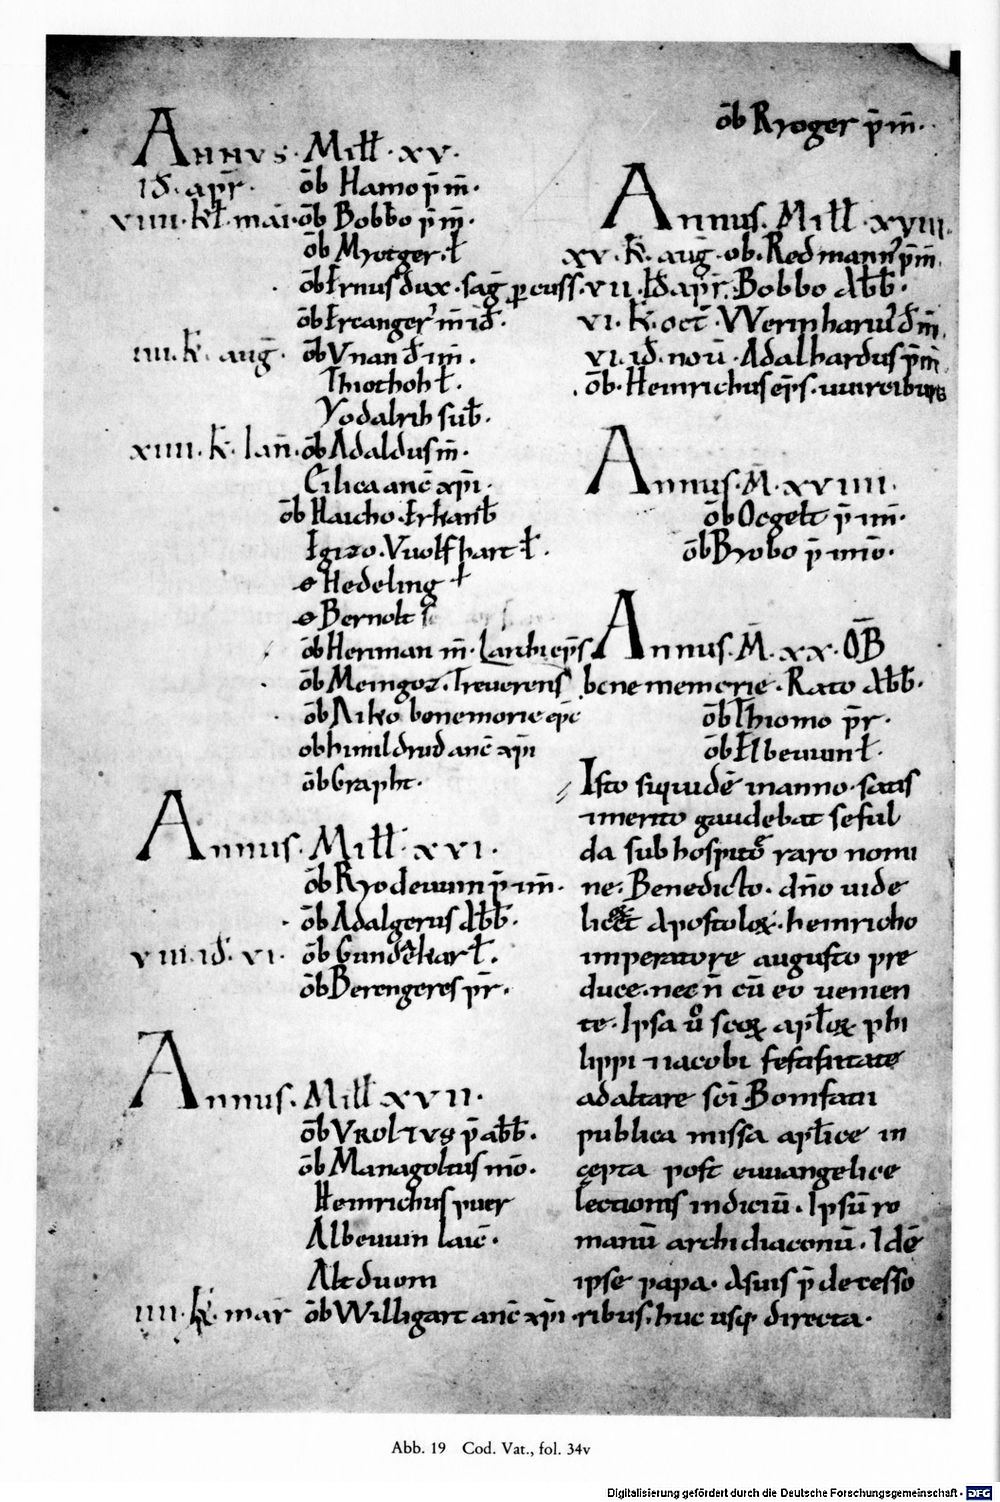 Annus · Mill · xv ·
id · apr̄ · ōb Hamo p̄ m̄ ·
viiii · kł · mai · ōb Bobbo p̄ m̄ ·
ōb Myotger · ł
ōb Ernus dux · sag̅ ꝑcuss ·
ōb Ercanger' m̄
iiii · k̄ · aug̅ · ōb Vnan
Thiothoh ł ·
Yodalrih sub̄ ·
xiiii · k̄ · Ian̄ · ōb Adaldus m̄ ·
Cilica anc̄ xp̄i ·
ōb Haicho · Erkanb̄
Egizo · Vuolfhart ł ·
Hedeling ł
Bernolt
ōb Heriman m̄ · Lanb ep̄s
ōb Meingoz · Treverens̄
ōb Aiko bonemorie ep̄c
ob himildrud anc̄ xp̄i
ōb Grapht ·
Annus · Mill · xvi ·
ōb Ryodeuuin p̄ m̄ ·
ōb Adalgerus abb̄ ·
viii · id · vi · ōb Gundekar ł ·
ōb Berengeres pr̄ ·
Annus · Mill xvii ·
ōb VROLTVS p̄ abb̄ ·
ōb Managoltus mō ·
Heinrichus puer
Albeuuin laic̄ ·
Altduom
iiii · k̄ · mar̄ ōb Willigart anc̄ xp̄i ·
ōb Ryoger p̄ m̄ ·
Annus · Mill · xviii ·
xv · k̄ · aug̅ · ob · Redmann' p̄ m̄ ·
vii · id apr̄ · Bobbo abb̄ ·
vi · k̄ · oct̄ · VVerinharius d̄ m̄ ·
vi · id · nou̅ · Adalhardus p̄ m̄ ·
ōb · Heinrichus ep̄s · uuirciburg
Annus · M̄ · xviiii ·
ōb Ocgelt p̄ m̄ ·
ōb Byobo p̄ mō ·
Annus · M̄ · xx · ŌB
bonememorie · Rato abb̄ ·
ōb Thiomo pr̄ ·
ōb Elbeuuin ł ·
Isto siquidē inanno · satis
imerito gaudebat seful
da sub hospitō raro nomi
ne · Benedicto · dn̄o uide
licet apostoloꝝ · heinricho
imperatore augusto pre
duce · nec n̄ cū eo uemen
te · Ipsa u̅ scoꝝ apłoꝝ phi
lippi ⁊ iacobi festiuitate
ad altare sc̄i Bonifatii
publica missa aplīce in
cepta post euuangelice
lectionis indiciū · Ipsū ro
manū archidiaconū · Idē
ipse papa · asuis p̄decesso
ribus · huc usq directa ·
Abb. 19 Cod. Vat., fol. 34v
Digitalisierung gefördert durch die Deutsche Forschungsgemeinschaft · DFG